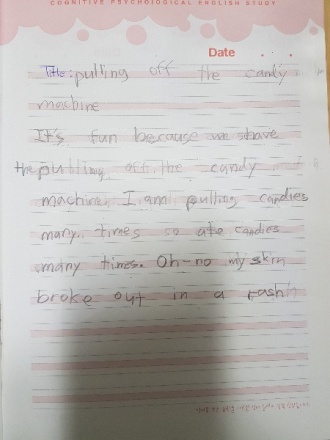 COGNITIVE PSYCHOLOGICAL ENGLISH STUDY
Date . . .
Title: pulling off the candy
machine
It's fun because we have
the pulling off the candy
machine, I am pulling candies
many times so ate candies
many times. Oh-no my skin
broke out in a rash!!